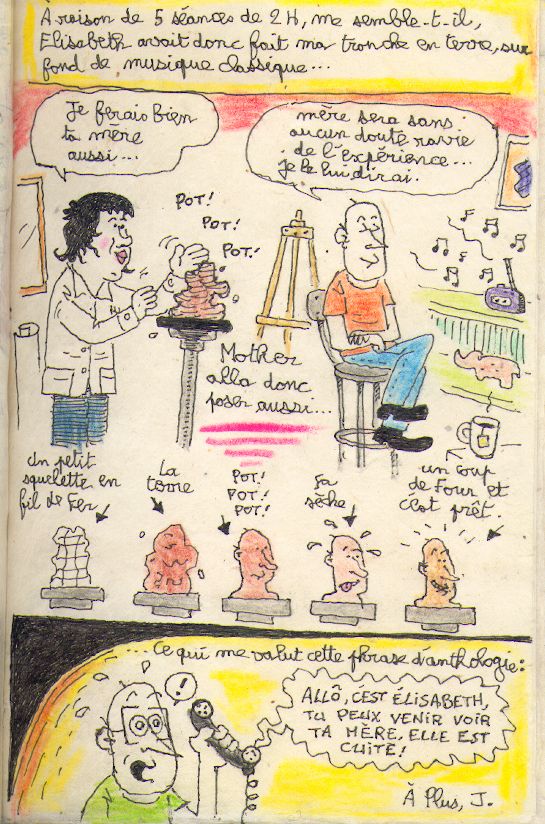 À raison de 5 séances de 2H, me semble-t-il,
Elisabeth avait donc fait ma tronche en terre, sur
fond de musique classique...
Je ferais bien
ta mère
aussi...
mère sera sans
aucun doute ravie
de l'expérience...
je le lui dirai.
POT!
POT!
POT!
Mother
alla donc
poser aussi...
Un petit
squelette en
fil de Fer
La
terre
POT!
POT!
POT!
ça
sèche
un coup
de Four et
c'est prêt.
...Ce qui me valut cette phrase d'anthologie:
!
ALLÔ, C'EST ÉLISABETH,
TU PEUX VENIR VOIR
TA MÈRE, ELLE EST
CUITE!
À Plus, J.